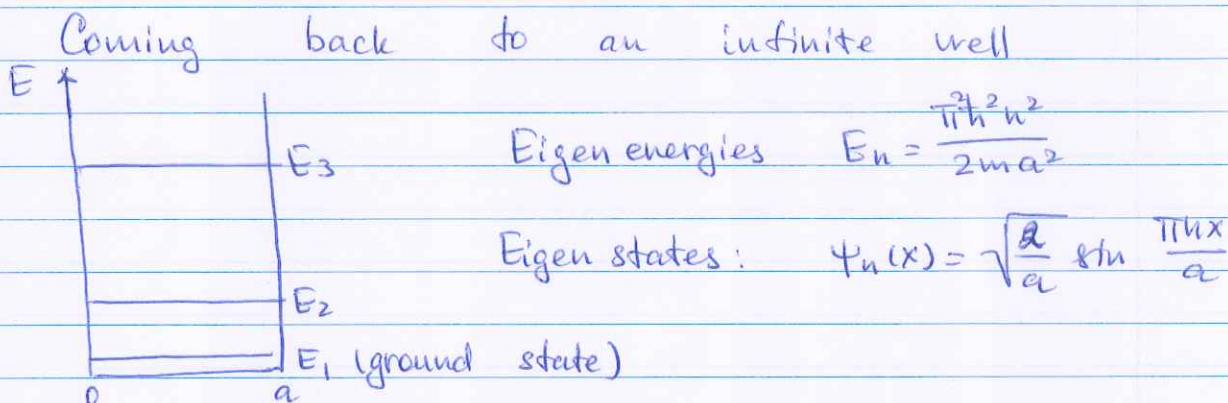 Coming back to an infinite well
E
E3
Eigen energies En = π²ħ²n² / 2ma²
Eigen states: ψn(x) = √(2/a) sin πnx/a
E2
E1 (ground state)
0 a